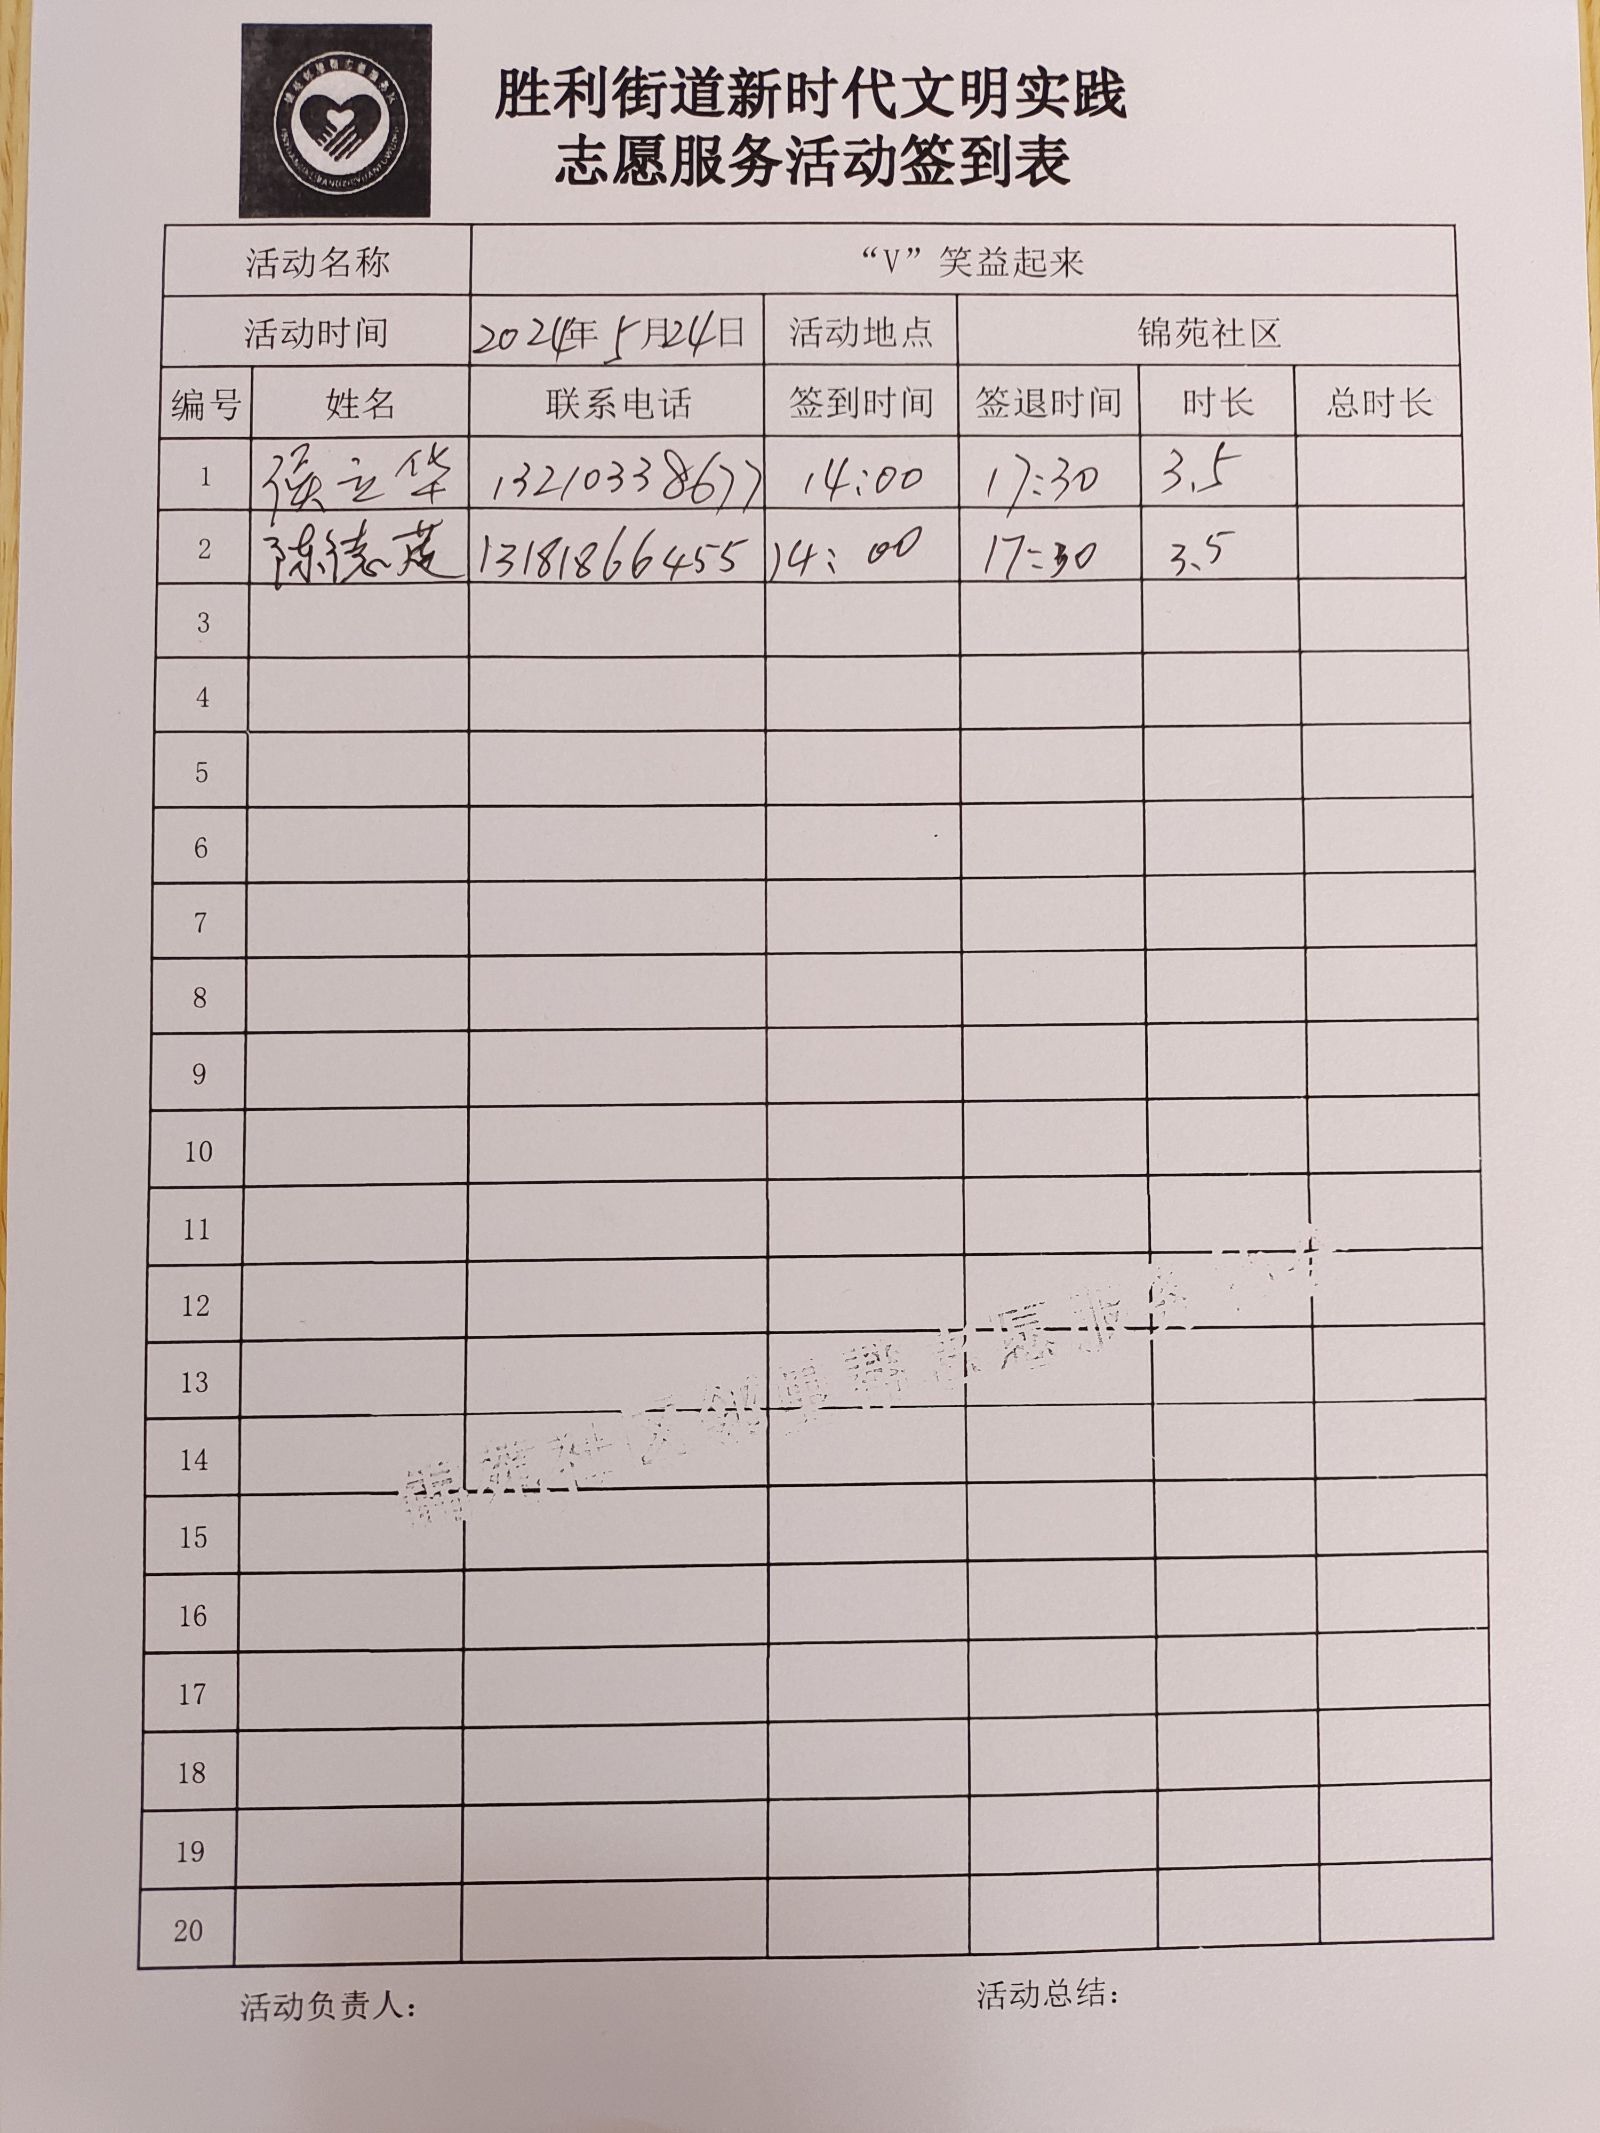 胜利街道新时代文明实践
志愿服务活动签到表
活动名称 “V”笑益起来
活动时间 2024年5月24日 活动地点 锦苑社区
编号 姓名 联系电话 签到时间 签退时间 时长 总时长
1 侯立华 13210338677 14:00 17:30 3.5
2 陈德 13181866455 14:00 17:30 3.5
3
4
5
6
7
8
9
10
11
12
13
14
15
16
17
18
19
20
锦苑社区邻里群志愿服务
活动负责人: 活动总结: